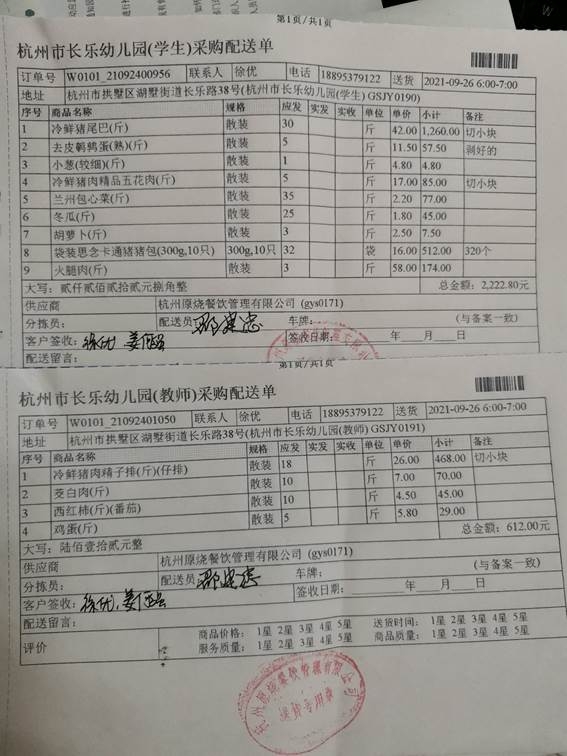 第1页/共1页
杭州市长乐幼儿园(学生)采购配送单
订单号 W0101_21092400956 联系人 徐优 电话 18895379122 送货 2021-09-26 6:00-7:00
地址 杭州市拱墅区湖墅街道长乐路38号(杭州市长乐幼儿园(学生) GSJY0190)
序号 商品名称 规格 应发 实发 实收 单位 单价 小计 备注
1 冷鲜猪尾巴(斤) 散装 30 斤 42.00 1,260.00 切小块
2 去皮鹌鹑蛋(熟)(斤) 散装 5 斤 11.50 57.50 剥好的
3 小葱(较细)(斤) 散装 1 斤 4.80 4.80
4 冷鲜猪肉精品五花肉(斤) 散装 5 斤 17.00 85.00 切小块
5 兰州包心菜(斤) 散装 35 斤 2.20 77.00
6 冬瓜(斤) 散装 25 斤 1.80 45.00
7 胡萝卜(斤) 散装 3 斤 2.50 7.50
8 袋装思念卡通猪猪包(300g,10只) 300g,10只 32 袋 16.00 512.00 320个
9 火腿肉(斤) 散装 3 斤 58.00 174.00
大写：贰仟贰佰贰拾贰元捌角整 总金额：2,222.80元
供应商 杭州原烧餐饮管理有限公司 (gys0171)
分拣员： 配送员： 车牌： (与备案一致)
客户签收：徐优 签收日期： 年 月 日
配送留言：
第1页/共1页
杭州市长乐幼儿园(教师)采购配送单
订单号 W0101_21092401050 联系人 徐优 电话 18895379122 送货 2021-09-26 6:00-7:00
地址 杭州市拱墅区湖墅街道长乐路38号(杭州市长乐幼儿园(教师) GSJY0191)
序号 商品名称 规格 应发 实发 实收 单位 单价 小计 备注
1 冷鲜猪肉精子排(斤)(仔排) 散装 18 斤 26.00 468.00 切小块
2 茭白肉(斤) 散装 10 斤 7.00 70.00
3 西红柿(斤)(番茄) 散装 10 斤 4.50 45.00
4 鸡蛋(斤) 散装 5 斤 5.80 29.00
大写：陆佰壹拾贰元整 总金额：612.00元
供应商 杭州原烧餐饮管理有限公司 (gys0171)
分拣员： 配送员： 车牌： (与备案一致)
客户签收：徐优 签收日期： 年 月 日
配送留言：
评价 商品价格： 1星 2星 3星 4星 5星 送货时间： 1星 2星 3星 4星 5星
服务质量： 1星 2星 3星 4星 5星 商品质量： 1星 2星 3星 4星 5星
杭州原烧餐饮管理有限公司
送货专用章